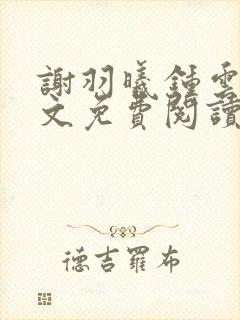 謝羽曦鍾雲
文免費閱讀
德吉羅布